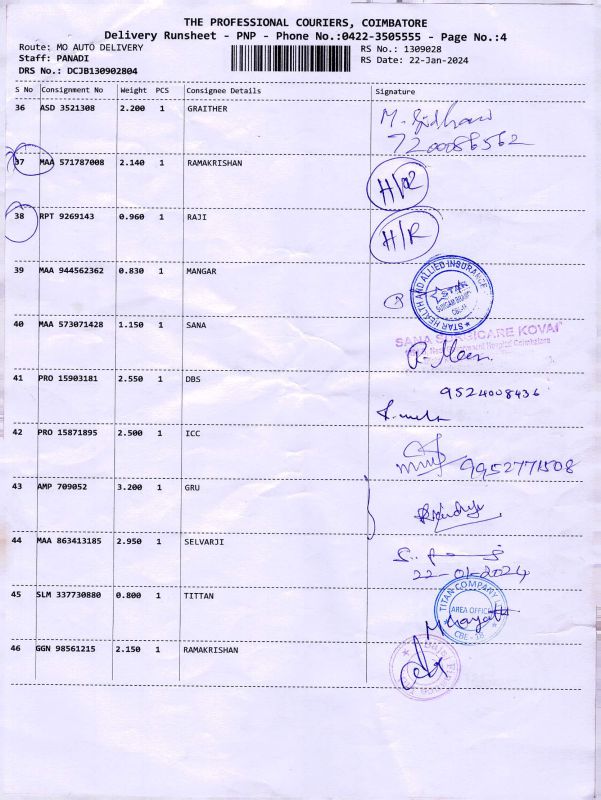 THE PROFESSIONAL COURIERS, COIMBATORE
Delivery Runsheet - PNP - Phone No.:0422-3505555 - Page No.:4
Route: MO AUTO DELIVERY RS No.: 1309028
Staff: PANADI RS Date: 22-Jan-2024
DRS No.: DCJB130902804
S No Consignment No Weight PCS Consignee Details Signature
36 ASD 3521308 2.200 1 GRAITHER
7200086562
37 MAA 571787008 2.140 1 RAMAKRISHAN
38 RPT 9269143 0.960 1 RAJI H/R
39 MAA 944562362 0.830 1 MANGAR STAR HEALTH AND ALLIED INSURANCE STAR
40 MAA 573071428 1.150 1 SANA SANA SURGICARE KOVAI
41 PRO 15903181 2.550 1 DBS 9524008436
42 PRO 15871895 2.500 1 ICC 9952771508
43 AMP 709052 3.200 1 GRU
44 MAA 863413185 2.950 1 SELVARJI
22-01-2024
45 SLM 337730880 0.800 1 TITTAN TITAN COMPANY AREA OFFICE CBE - 18
46 GGN 98561215 2.150 1 RAMAKRISHAN